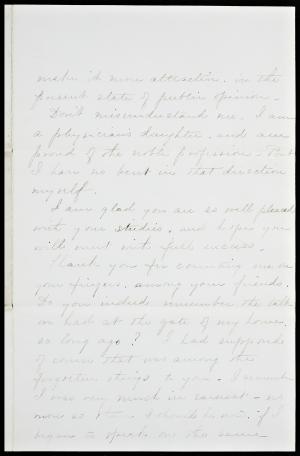 make it more attractive, in the
present state of public opinion.
Don't misunderstand me. I am
a physician's daughter, and am
proud of the noble profession. But
I have no bent in that direction
myself.
I am glad you are so well pleased
with your studies, and hope you
will meet with full success.
Thank you for counting me on
your fingers, among your friends.
Do you indeed remember the talk
we had at the gate of my home,
so long ago? I had supposed
of course that was among the
forgotten things to you. I remember
I was very much in earnest - no
more so than I should be now, if I
began to speak on the same